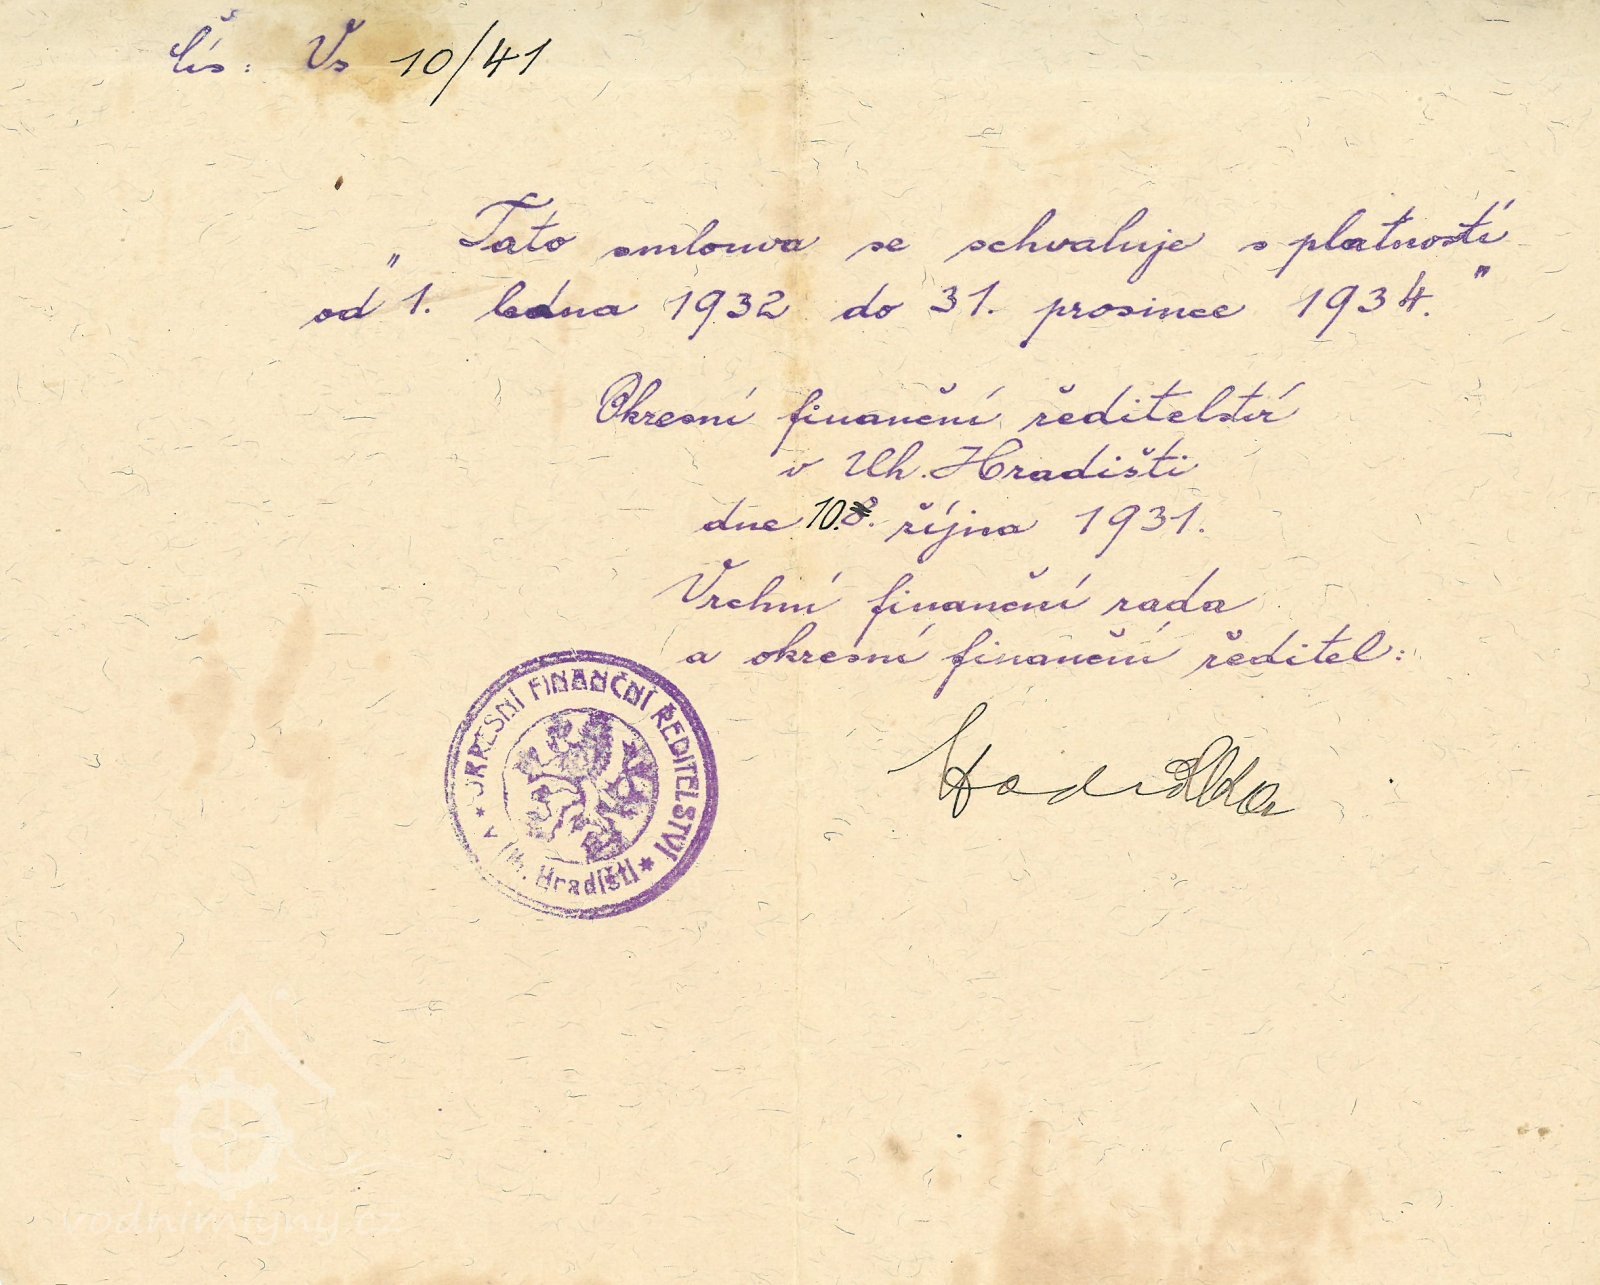 Čís: Vs 10/41
„Tato smlouva se schvaluje s platností
od 1. ledna 1932 do 31. prosince 1934."
Okresní finanční ředitelství
v Uh. Hradišti
dne 10. října 1931.
Vrchní finanční rada
a okresní finanční ředitel:
* OKRESNÍ FINANČNÍ ŘEDITELSTVÍ *
v Uh. Hradišti
vodnimlyny.cz